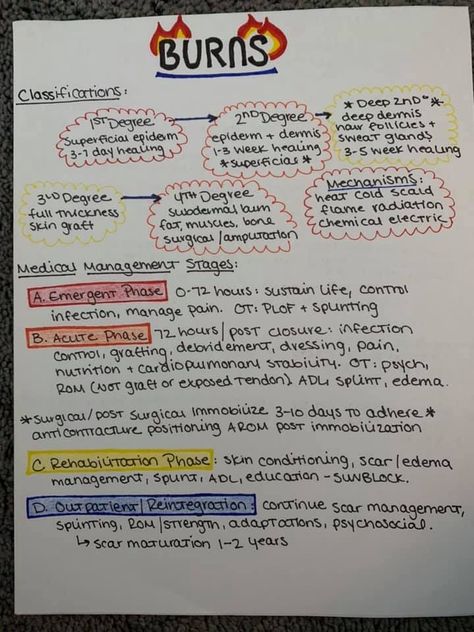 BURNS
Classifications:
1ST Degree
Superficial epiderm
3-7 day healing
2ND Degree
epiderm + dermis
1-3 week healing
*superficial*
*Deep 2ND°*
deep dermis
hair follicles +
sweat glands
3-5 week healing
3RD Degree
full thickness
skin graft
4TH Degree
subdermal burn
fat, muscles, bone
surgical/amputation
Mechanisms:
heat cold scald
flame radiation
chemical electric
Medical Management Stages:
A. Emergent Phase 0-72 hours: sustain life, control
infection, manage pain. OT: PLOF + splinting
B. Acute Phase 72 hours/post closure: infection
control, grafting, debridement, dressing, pain,
nutrition + cardiopulmonary stability. OT: psych,
ROM (not graft or exposed tendon) ADL splint, edema.
*surgical/post surgical immobilize 3-10 days to adhere*
anticontracture positioning AROM post immobilization
C. Rehabilitation Phase: skin conditioning, scar/edema
management, splint, ADL, education - SUNBLOCK.
D. Outpatient/Reintegration: continue scar management,
splinting, ROM/strength, adaptations, psychosocial.
↳ scar maturation 1-2 years